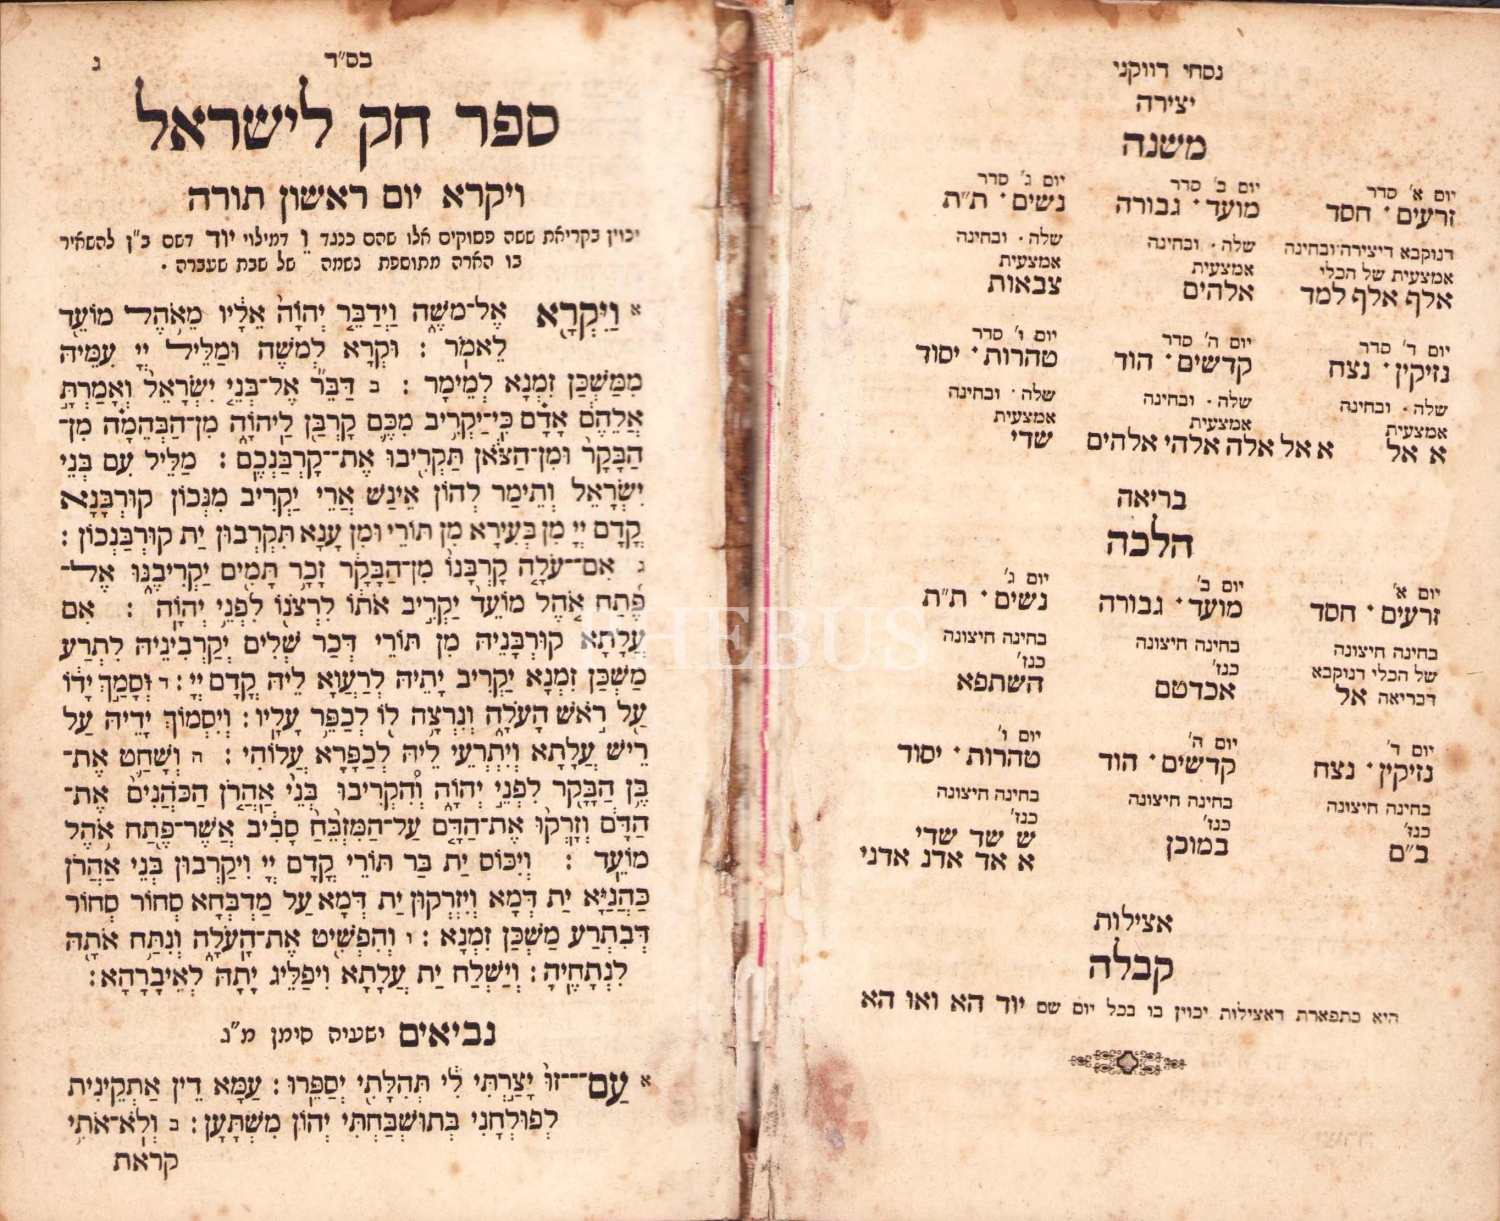 נסחי דווקני
יצירה
משנה
יום א׳ סדר יום ב׳ סדר יום ג׳ סדר
זרעים · חסד מועד · גבורה נשים · ת״ת
דנוקבא דיצירה ובחינה שלה · ובחינה שלה · ובחינה
אמצעית של הכלי אמצעית אמצעית
אלף אלף למד אלהים צבאות
יום ד׳ סדר יום ה׳ סדר יום ו׳ סדר
נזיקין · נצח קדשים · הוד טהרות · יסוד
שלה · ובחינה שלה · ובחינה שלה · ובחינה
אמצעית אמצעית אמצעית
א אל א אל אלה אלהי אלהים שדי
בריאה
הלכה
יום א׳ יום ב׳ יום ג׳
זרעים · חסד מועד · גבורה נשים · ת״ת
בחינה חיצונה בחינה חיצונה בחינה חיצונה
של הכלי דנוקבא כנז׳ כנז׳
דבריאה אל אכדטם השתפא
יום ד׳ יום ה׳ יום ו׳
נזיקין · נצח קדשים · הוד טהרות · יסוד
בחינה חיצונה בחינה חיצונה בחינה חיצונה
כנז׳ כנז׳ כנז׳
ב״ם במוכן ש שד שדי
א אד אדנ אדני
אצילות
קבלה
היא בתפארת דאצילות יכוין בו בכל יום שם יוד הא ואו הא
בס״ד
ג
ספר חק לישראל
ויקרא יום ראשון תורה
יכוין בקריאת ששה פסוקים אלו שהם כנגד ו דמילוי יוד דשם ב״ן להשאיר
בו הארה מתוספת נשמה של שבת שעברה ·
א וַיִּקְרָא אֶל־מֹשֶׁה וַיְדַבֵּר יְהוָה אֵלָיו מֵאֹהֶל מוֹעֵד
לֵאמֹר : וּקְרָא לְמֹשֶׁה וּמַלֵּיל יְיָ עִמֵּיהּ
מִמַּשְׁכַּן זִמְנָא לְמֵימָר : ב דַּבֵּר אֶל־בְּנֵי יִשְׂרָאֵל וְאָמַרְתָּ
אֲלֵהֶם אָדָם כִּי־יַקְרִיב מִכֶּם קָרְבָּן לַיהוָה מִן־הַבְּהֵמָה מִן־
הַבָּקָר וּמִן־הַצֹּאן תַּקְרִיבוּ אֶת־קָרְבַּנְכֶם : מַלֵּיל עִם בְּנֵי
יִשְׂרָאֵל וְתֵימַר לְהוֹן אֵינַשׁ אֲרֵי יַקְרִיב מִנְּכוֹן קוּרְבָּנָא
קֳדָם יְיָ מִן בְּעִירָא מִן תּוֹרֵי וּמִן עָנָא תִּקְרְבוּן יַת קוּרְבַּנְכוֹן :
ג אִם־עֹלָה קָרְבָּנוֹ מִן־הַבָּקָר זָכָר תָּמִים יַקְרִיבֶנּוּ אֶל־
פֶּתַח אֹהֶל מוֹעֵד יַקְרִיב אֹתוֹ לִרְצֹנוֹ לִפְנֵי יְהוָה : אִם
עֲלָתָא קוּרְבָּנֵיהּ מִן תּוֹרֵי דְּכַר שְׁלִים יְקַרְבִינֵיהּ לִתְרַע
מַשְׁכַּן זִמְנָא יַקְרִיב יָתֵיהּ לְרַעֲוָא לֵיהּ קֳדָם יְיָ : ד וְסָמַךְ יָדוֹ
עַל רֹאשׁ הָעֹלָה וְנִרְצָה לוֹ לְכַפֵּר עָלָיו : וְיִסְמוֹךְ יְדֵיהּ עַל
רֵישׁ עֲלָתָא וְיִתְרְעֵי לֵיהּ לְכַפָּרָא עֲלוֹהִי : ה וְשָׁחַט אֶת־
בֶּן הַבָּקָר לִפְנֵי יְהוָה וְהִקְרִיבוּ בְּנֵי אַהֲרֹן הַכֹּהֲנִים אֶת־
הַדָּם וְזָרְקוּ אֶת־הַדָּם עַל־הַמִּזְבֵּחַ סָבִיב אֲשֶׁר־פֶּתַח אֹהֶל
מוֹעֵד : וְיִכּוֹס יַת בַּר תּוֹרֵי קֳדָם יְיָ וִיקַרְבוּן בְּנֵי אַהֲרֹן
כַּהֲנַיָּא יַת דְּמָא וְיִזְרְקוּן יַת דְּמָא עַל מַדְבְּחָא סְחוֹר סְחוֹר
דְּבִתְרַע מַשְׁכַּן זִמְנָא : ו וְהִפְשִׁיט אֶת־הָעֹלָה וְנִתַּח אֹתָהּ
לִנְתָחֶיהָ : וְיַשְׁלַח יַת עֲלָתָא וִיפַלֵּיג יָתַהּ לְאֵיבָרָהָא :
נביאים ישעיה סימן מ״ג
א עַם־זוּ יָצַרְתִּי לִי תְּהִלָּתִי יְסַפֵּרוּ : עַמָּא דֵין אַתְקֵינִית
לְפוּלְחָנִי בְּתוּשְׁבַּחְתִּי יְהוֹן מִשְׁתָּעָן : ב וְלֹא־אֹתִי
קראת
PHEBUS